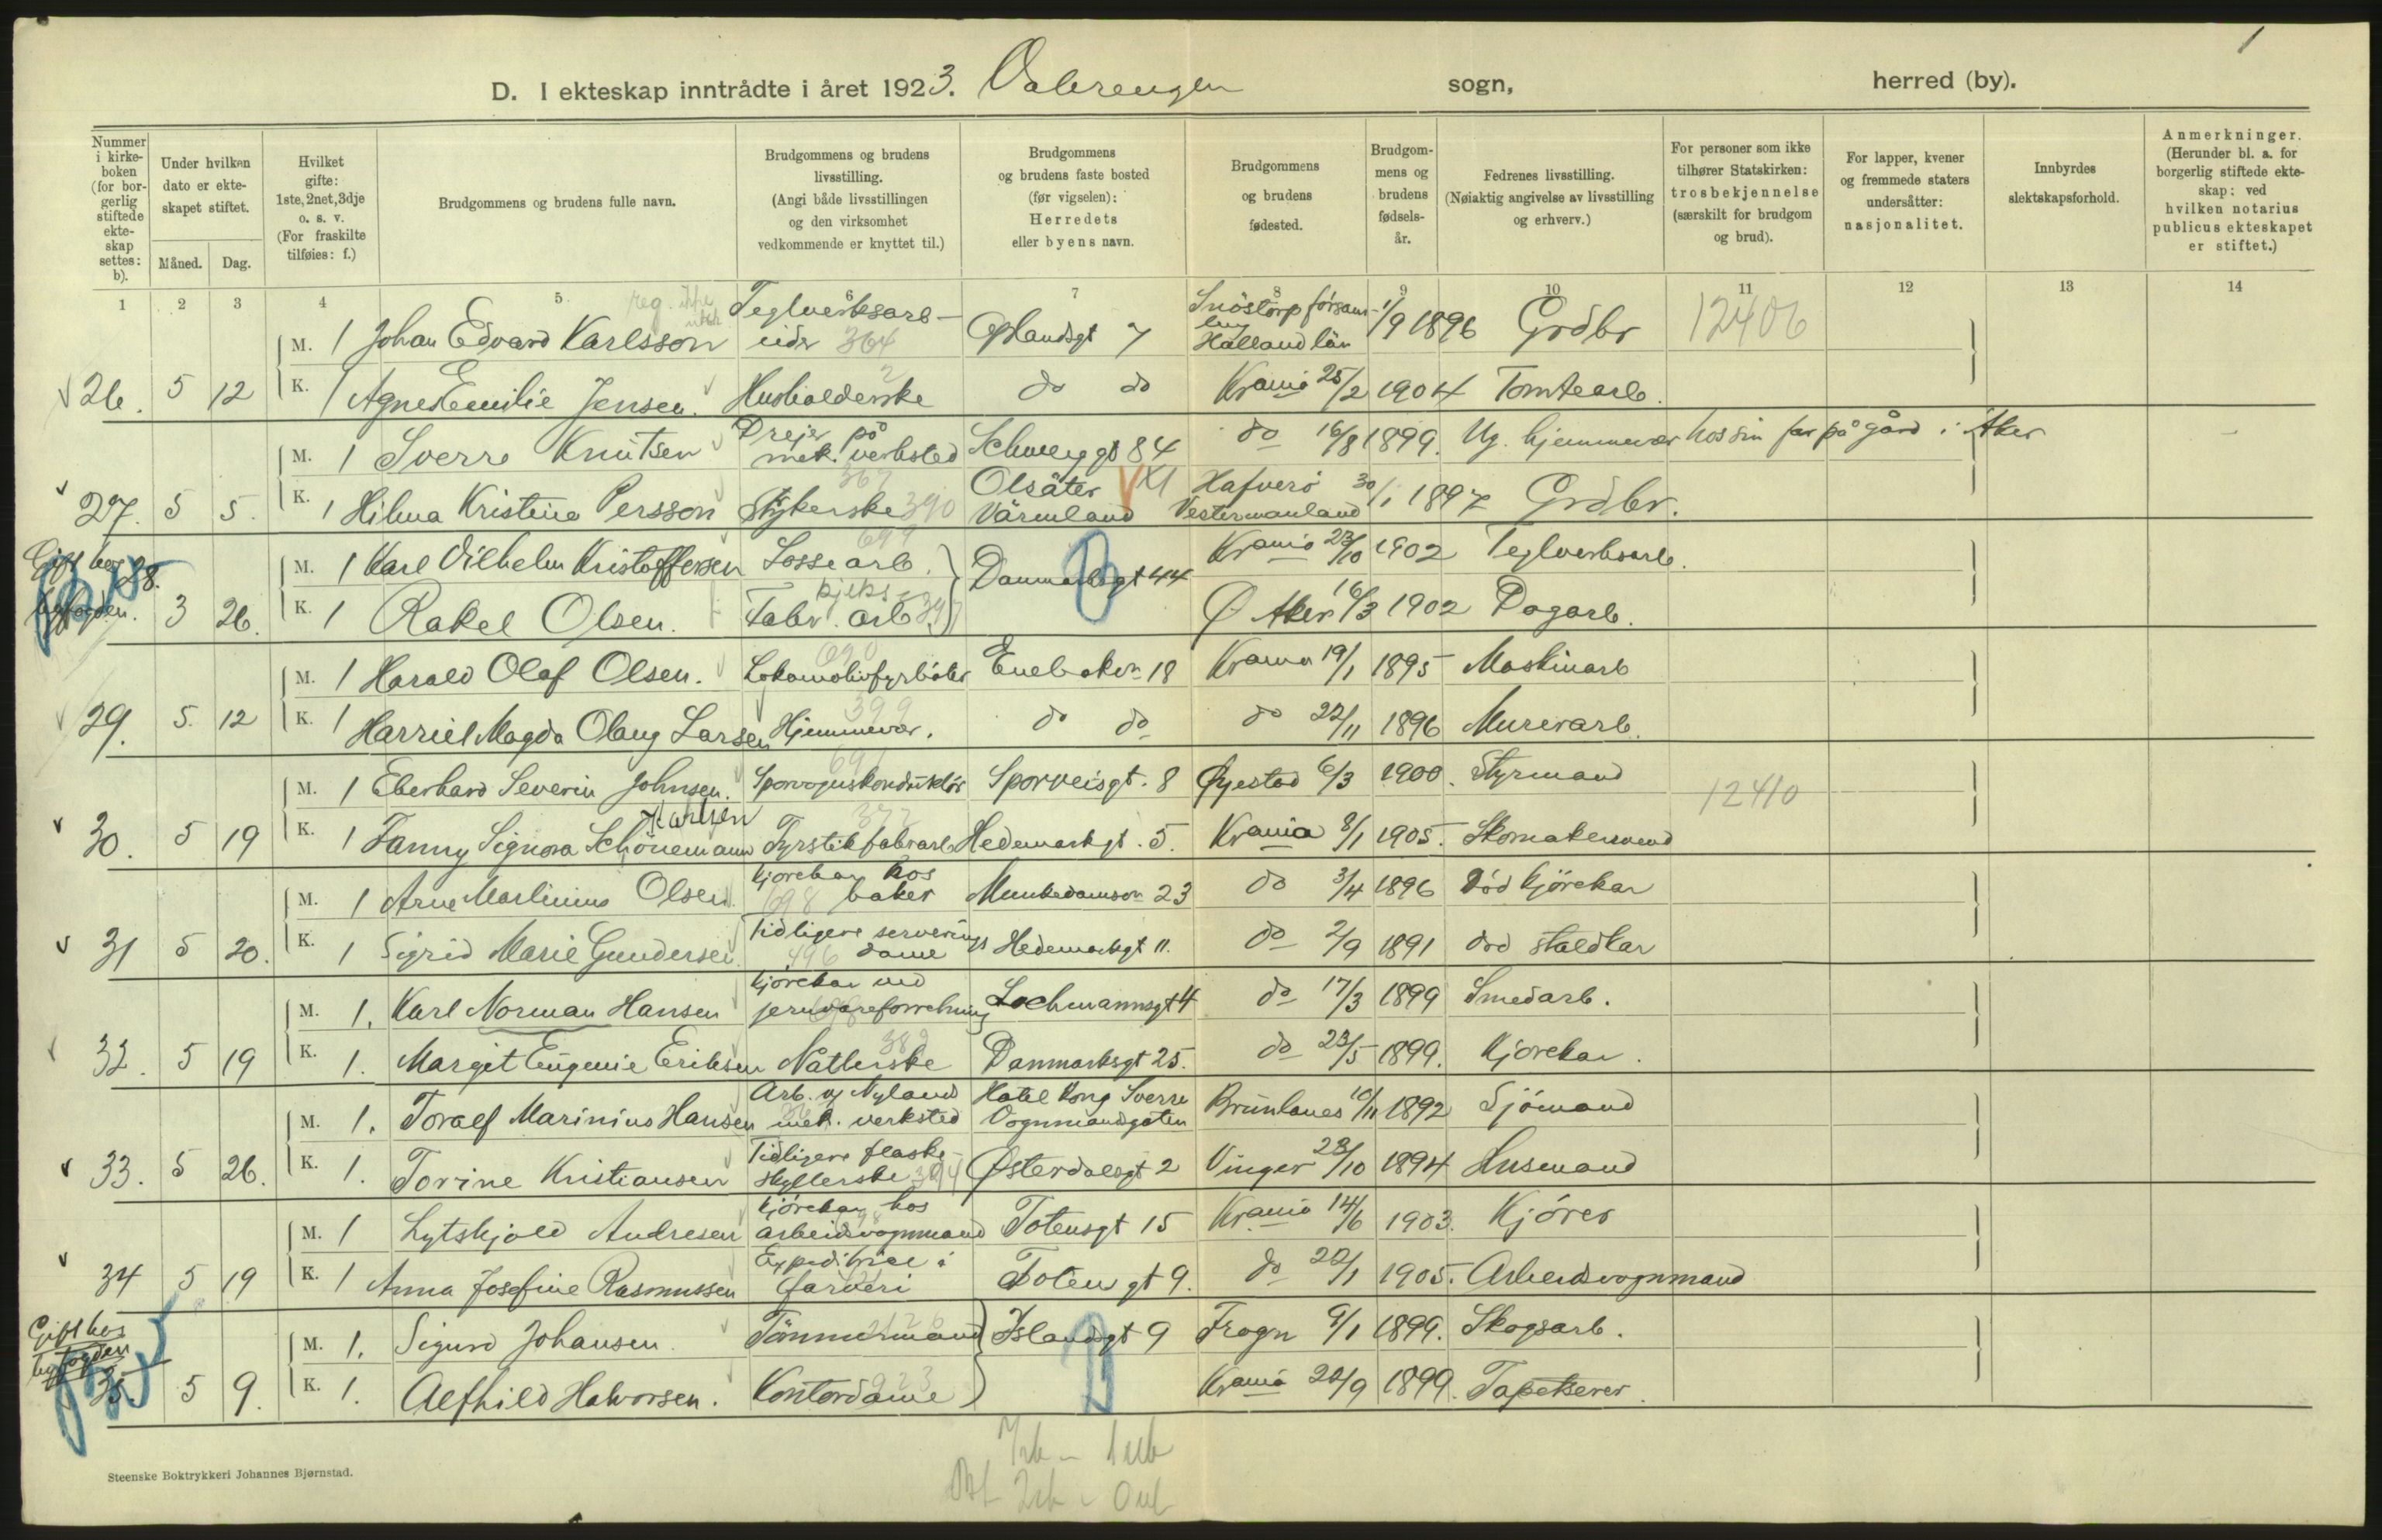 1
D. I ekteskap inntrådte i året 1923. Vålerengen sogn, herred (by).
Nummer i kirkeboken (for borgerlig stiftede ekteskap settes: b).
Under hvilken dato er ekteskapet stiftet.
Måned. Dag.
Hvilket gifte: 1ste, 2net, 3dje o. s. v. (For fraskilte tilføies: f.)
Brudgommens og brudens fulle navn.
Brudgommens og brudens livsstilling. (Angi både livsstillingen og den virksomhet vedkommende er knyttet til.)
Brudgommens og brudens faste bosted (før vigselen): Herredets eller byens navn.
Brudgommens og brudens fødested.
Brudgommens og brudens fødselsår.
Fedrenes livsstilling. (Nøiaktig angivelse av livsstilling og erhverv.)
For personer som ikke tilhører Statskirken: trosbekjennelse (særskilt for brudgom og brud).
For lapper, kvener og fremmede staters undersåtter: nasjonalitet.
Innbyrdes slektskapsforhold.
Anmerkninger. (Herunder bl. a. for borgerlig stiftede ekteskap: ved hvilken notarius publicus ekteskapet er stiftet.)
1 2 3 4 5 7 8 9 10 11 12 13 14
M. 1 Johan Edvard Karlsson Teglverksarbeider 364 Oplandsgt 7 Snöstorp församling Halland län 1/9 1896 Grdbr 12406
26. 5 12 K. 1 Agnes Emilie Jensen. Husholderske do do Krania 25/2 1904 Tomtearb.
M. 1 Sverre Knutsen Dreier på mek. verksted Schweiggt 84 do 16/8 1899. Ug. hjemmevær hos sin far på gård i Aker
27. 5 5. K. 1 Hilma Kristine Persson Strykerske 390 Olsäter Värmland XI Hafverö Vestermanland 30/1 1897 Grdbr.
Gift hos byfogden.
M. 1 Karl Vilhelm Kristoffersen Lossearb. Danmarksgt 44 Krania 23/10 1902 Teglverksarb.
28. 3 26. K. 1 Rakel Olsen. kjeks Fabr. arb. Ø Aker 16/3 1902 Dagarb.
M. 1 Harald Olaf Olsen. Lokomotivfyrbøter 690 Enebakvn 18 Krania 19/1 1895 Maskinarb
29. 5. 12 K. 1 Harriet Magda Olaug Larsen Hjemmevær. 399 do do do 22/11 1896 Murerarb.
M. 1 Eberhard Severin Johnsen. Sporvognskonduktör Sporveisgt. 8 Øyestad 6/3 1900. Styrmand 12410
30. 5 19 K. 1 Fanny Signora Schönemann Karlsen Fyrstikfabrarb 372 Hedemarkgt. 5. Krania 8/1 1905. Skomakersvend
M. 1 Arne Martinius Olsen. Kjörekar hos baker 698 Munkedamsvn 23 do 3/4 1896 Död kjörekar
31 5 20. K. 1 Sigrid Marie Gundersen. Tidligere serveringsdame 496 Hedemarksgt 11. do 2/9 1891 död staldkar
M. 1. Karl Norman Hansen Kjörekar ved jernvareforretning Lochmannsgt 4 do 17/3 1899 Smedarb.
32. 5 19 K. 1. Margit Eugenie Eriksen Natterske Danmarksgt 25. do 23/5 1899. Kjörekar.
M. 1. Toralf Marinius Hansen Arb. v Nyland mek. verksted Hotel Kong Sverre Vognmandsgaten Brunlanes 10/11 1892 Sjömand
33. 5 26. K. 1. Torine Kristiansen Tidligere flaskeskyllerske 394 Østerdalsgt 2 Vinger 23/10 1894 Husmand
M. 1 Lytskjold Andresen Kjörekar hos arbeidsvognmand Totensgt 15 Krania 14/6 1903. Kjörer
34 5 19 K. 1 Anna Josefine Rasmussen Expeditrice i farveri Totengt 9. do 22/1 1905. Arbeidsvognmand
Gift hos byfogden
M. 1. Sigurd Johansen. Tömmermand Islandsgt 9 Frogn 9/1 1899. Skogsarb.
35. 5 9. K. 1. Alfhild Halvorsen. Kontordame 923 Krania 20/9 1899. Tapetserer.
Steenske Boktrykkeri Johannes Bjørnstad.